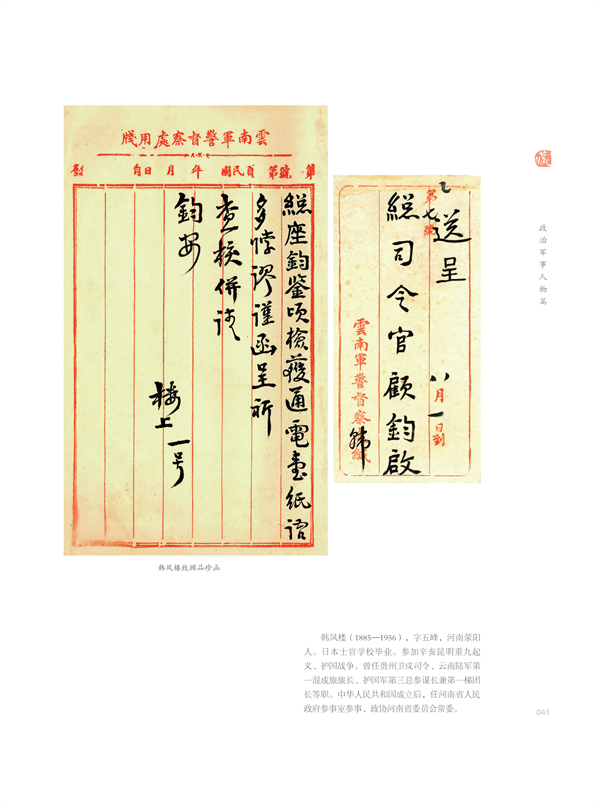 雲南軍警督察處用牋
第 號第 頁民國 年 月 日自 發
総座鈞鑒頃檢獲通電壹紙語
多悖謬謹函呈祈
查核併請
鈞安
楼上
一号
第七號
送呈
総司令官顧鈞啟
八月一日到
雲南軍警督察
韩
政治军事人物篇
韩凤楼致拥品珍函
韩凤楼（1885—1956），字五峰，河南荥阳
人。日本士官学校毕业。参加辛亥昆明重九起
义、护国战争。曾任贵州卫戍司令、云南陆军第
一混成旅旅长、护国军第三总参谋长兼第一梯团
长等职。中华人民共和国成立后，任河南省人民
政府参事室参事、政协河南省委员会常委。
041